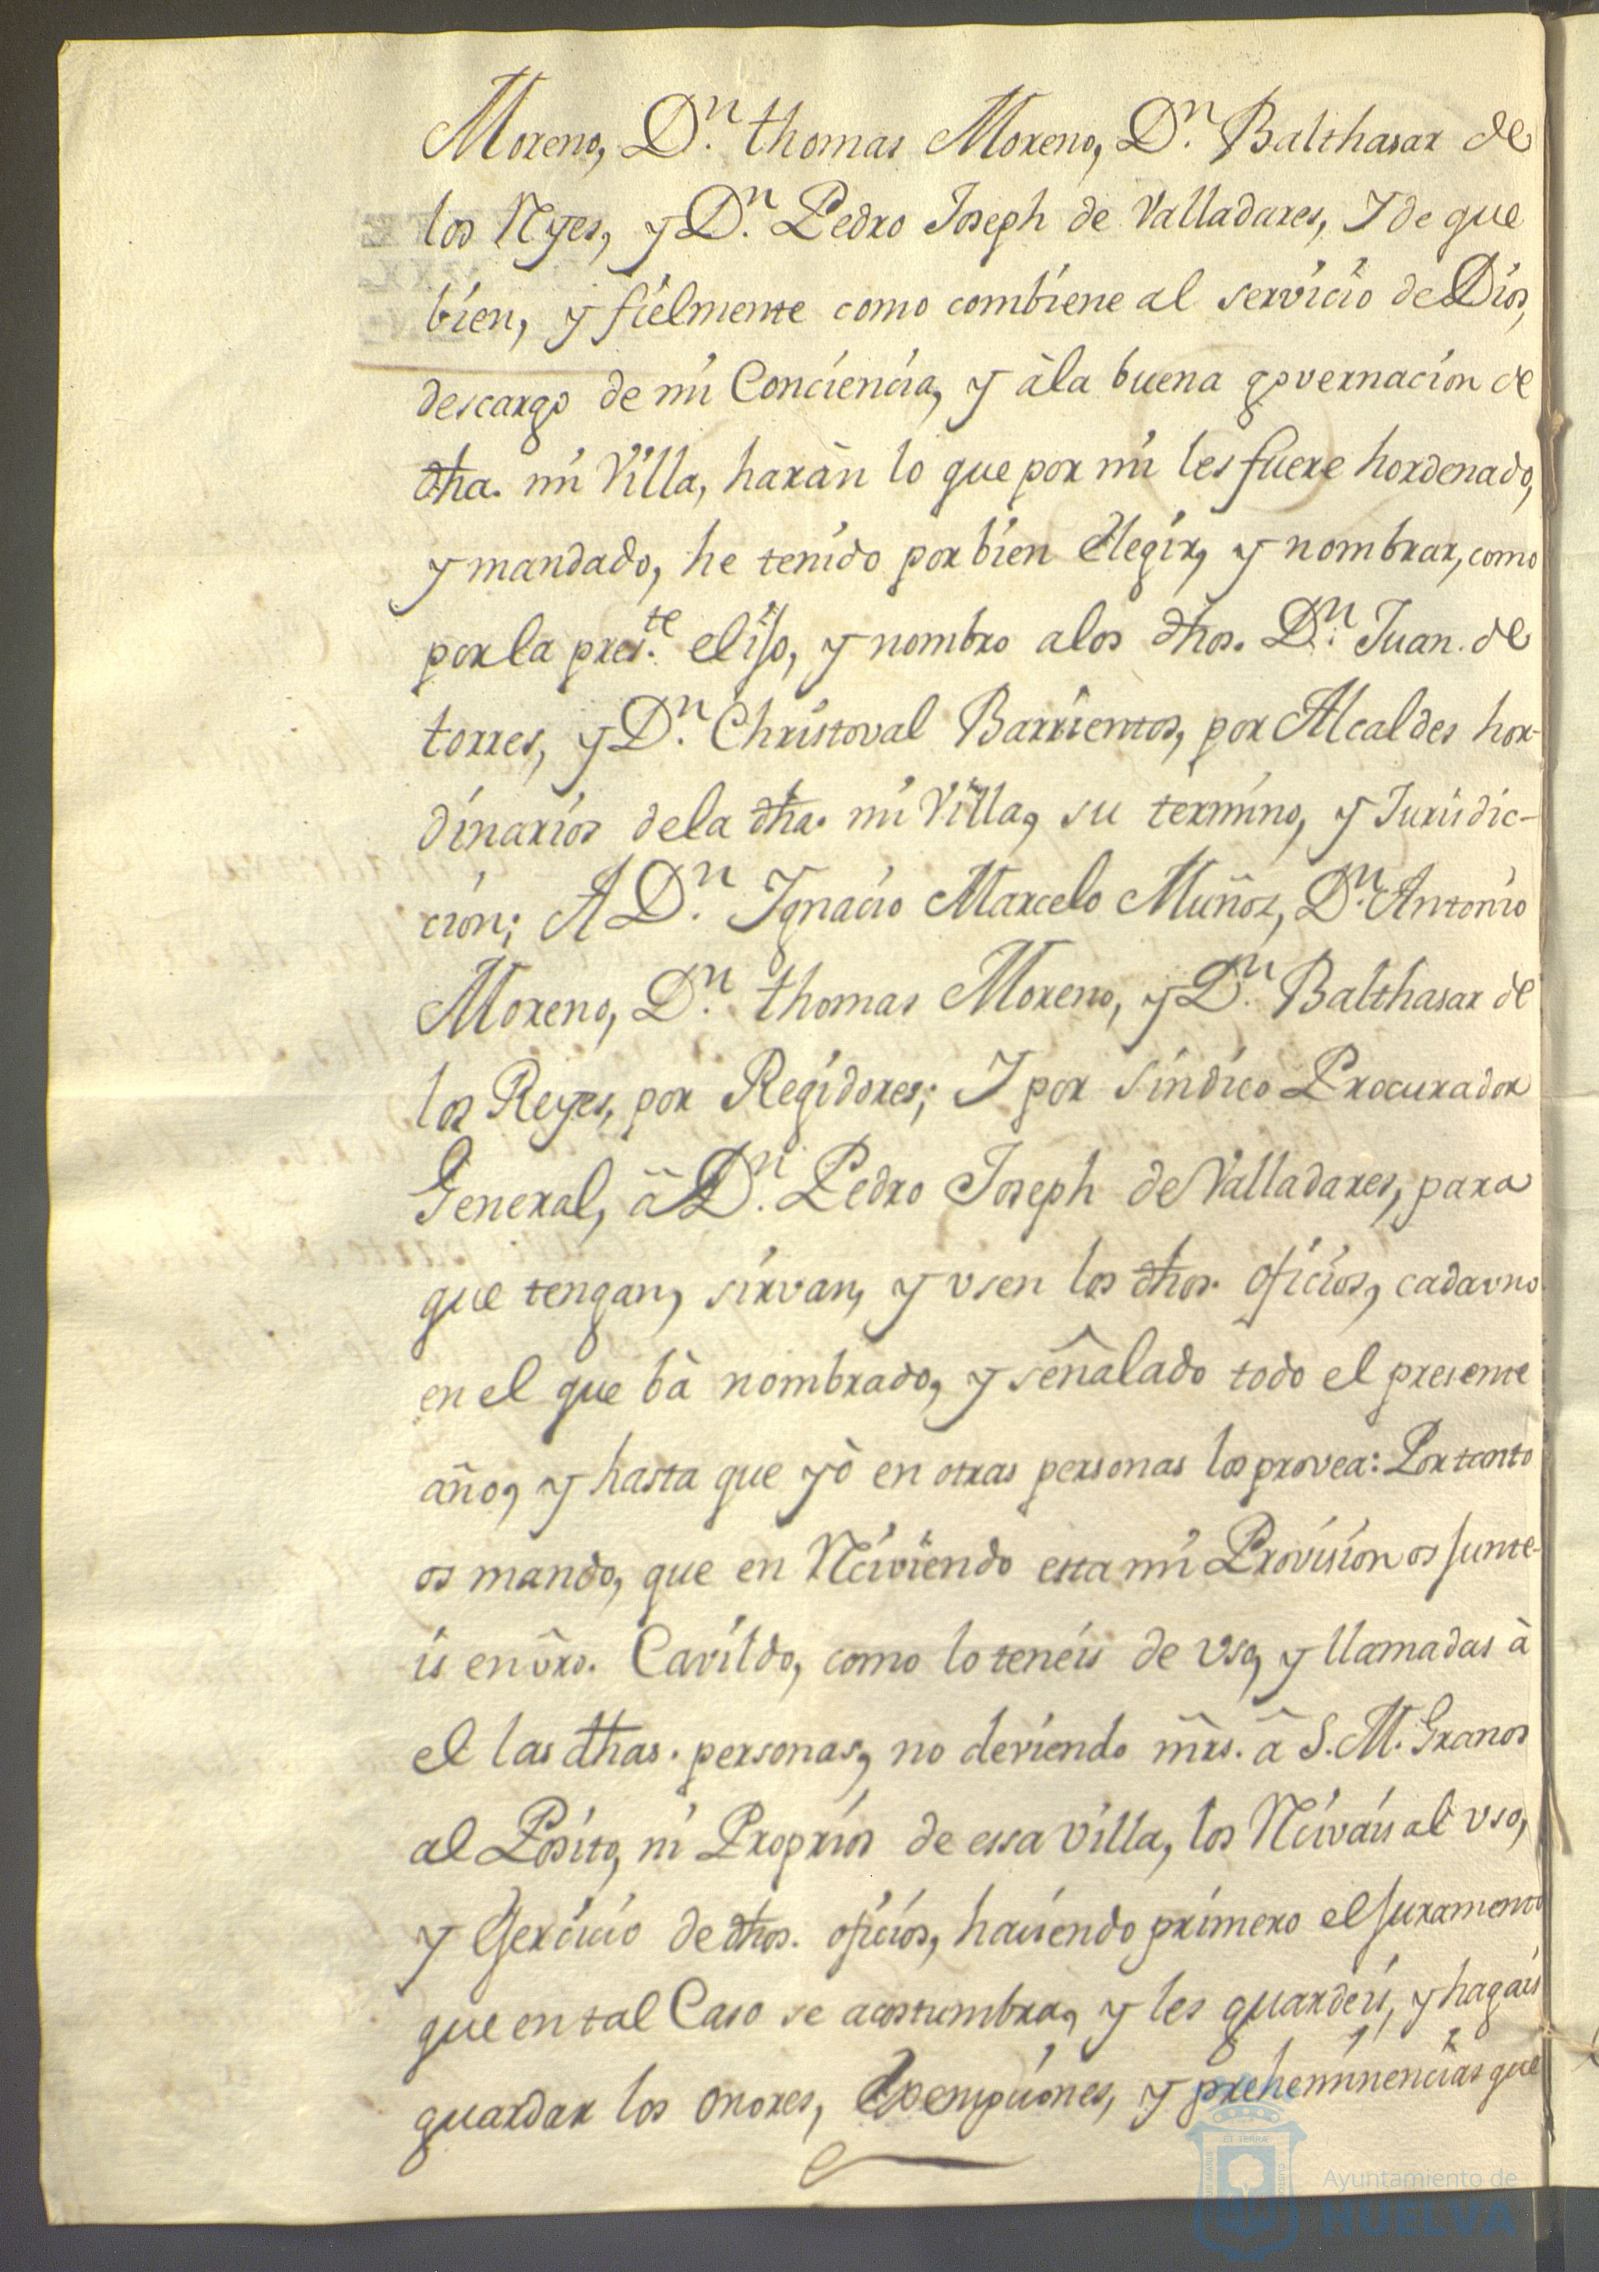 Moreno, D.ⁿ thomas Moreno, D.ⁿ Balthasar de
los Rẏes, y D.ⁿ Pedro Joseph de Valladares, I de que
bien, y fielmente como combiene al servicio de Dios,
descargo de mi Conciencia, y àla buena governacion de
dha. mi Villa, haràn lo que por mi les fuere hordenado,
y mandado, he tenido por bien elegir, y nombrar, como
por la pres.te elijo, y nombro a los dhos. D.ⁿ Juan. de
torres, y D.ⁿ Christoval Barrientos, por Alcaldes hor-
dinarios dela dha. mi Villa, su termino, y Jurisdic-
cion; A D.ⁿ Ignacio Marcelo Muñoz, D.ⁿ Antonio
Moreno, D.ⁿ thomas Moreno, y D.ⁿ Balthasar de
los Reyes, por Regidores; I por sindico Procurador
General, â D.ⁿ Pedro Joseph de Valladares, para
que tengan, sirvan, y vsen los dhos. oficios, cada vno
en el que bà nombrado, y señalado todo el presente
año, y hasta que yò en otras personas los provea: Por tanto
os mando, que en Rciviendo esta mi Provision os junte-
is en vr̃o. Cavildo, como lo teneis de vso, y llamadas à
el las dhas. personas, no deviendo mr̃s. â S. M. Granos
al Posito, ni Proprios de essa villa, los Rcivais al vso,
y Egercicio de dhos. oficios, haciendo primero el juramento
que en tal Caso se acostumbra, y les guardeis, y hagais
guardar los onores, Exempciones, y preheminencias que
Ayuntamiento de
HUELVA